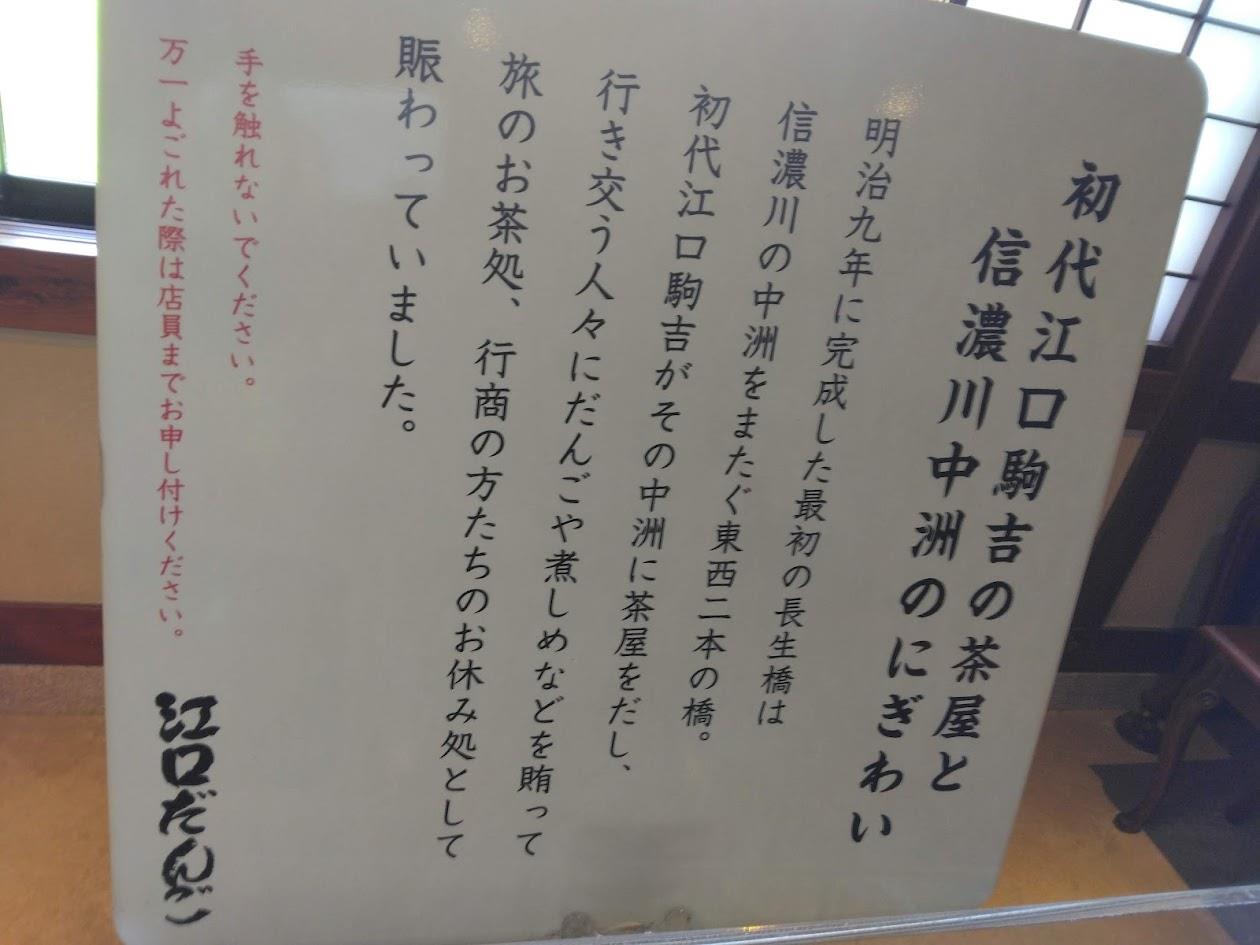 初代江口駒吉の茶屋と
信濃川中洲のにぎわい
明治九年に完成した最初の長生橋は
信濃川の中洲をまたぐ東西二本の橋。
初代江口駒吉がその中洲に茶屋をだし、
行き交う人々にだんごや煮しめなどを賄って
旅のお茶処、行商の方たちのお休み処として
賑わっていました。
手を触れないでください。
万一よごれた際は店員までお申し付けください。
江口だんご